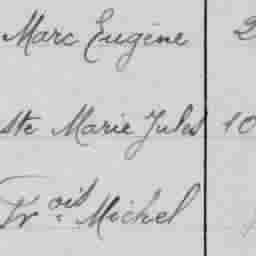 Marc Eugène 2
ste Marie Jules 10
Fr.ois Michel